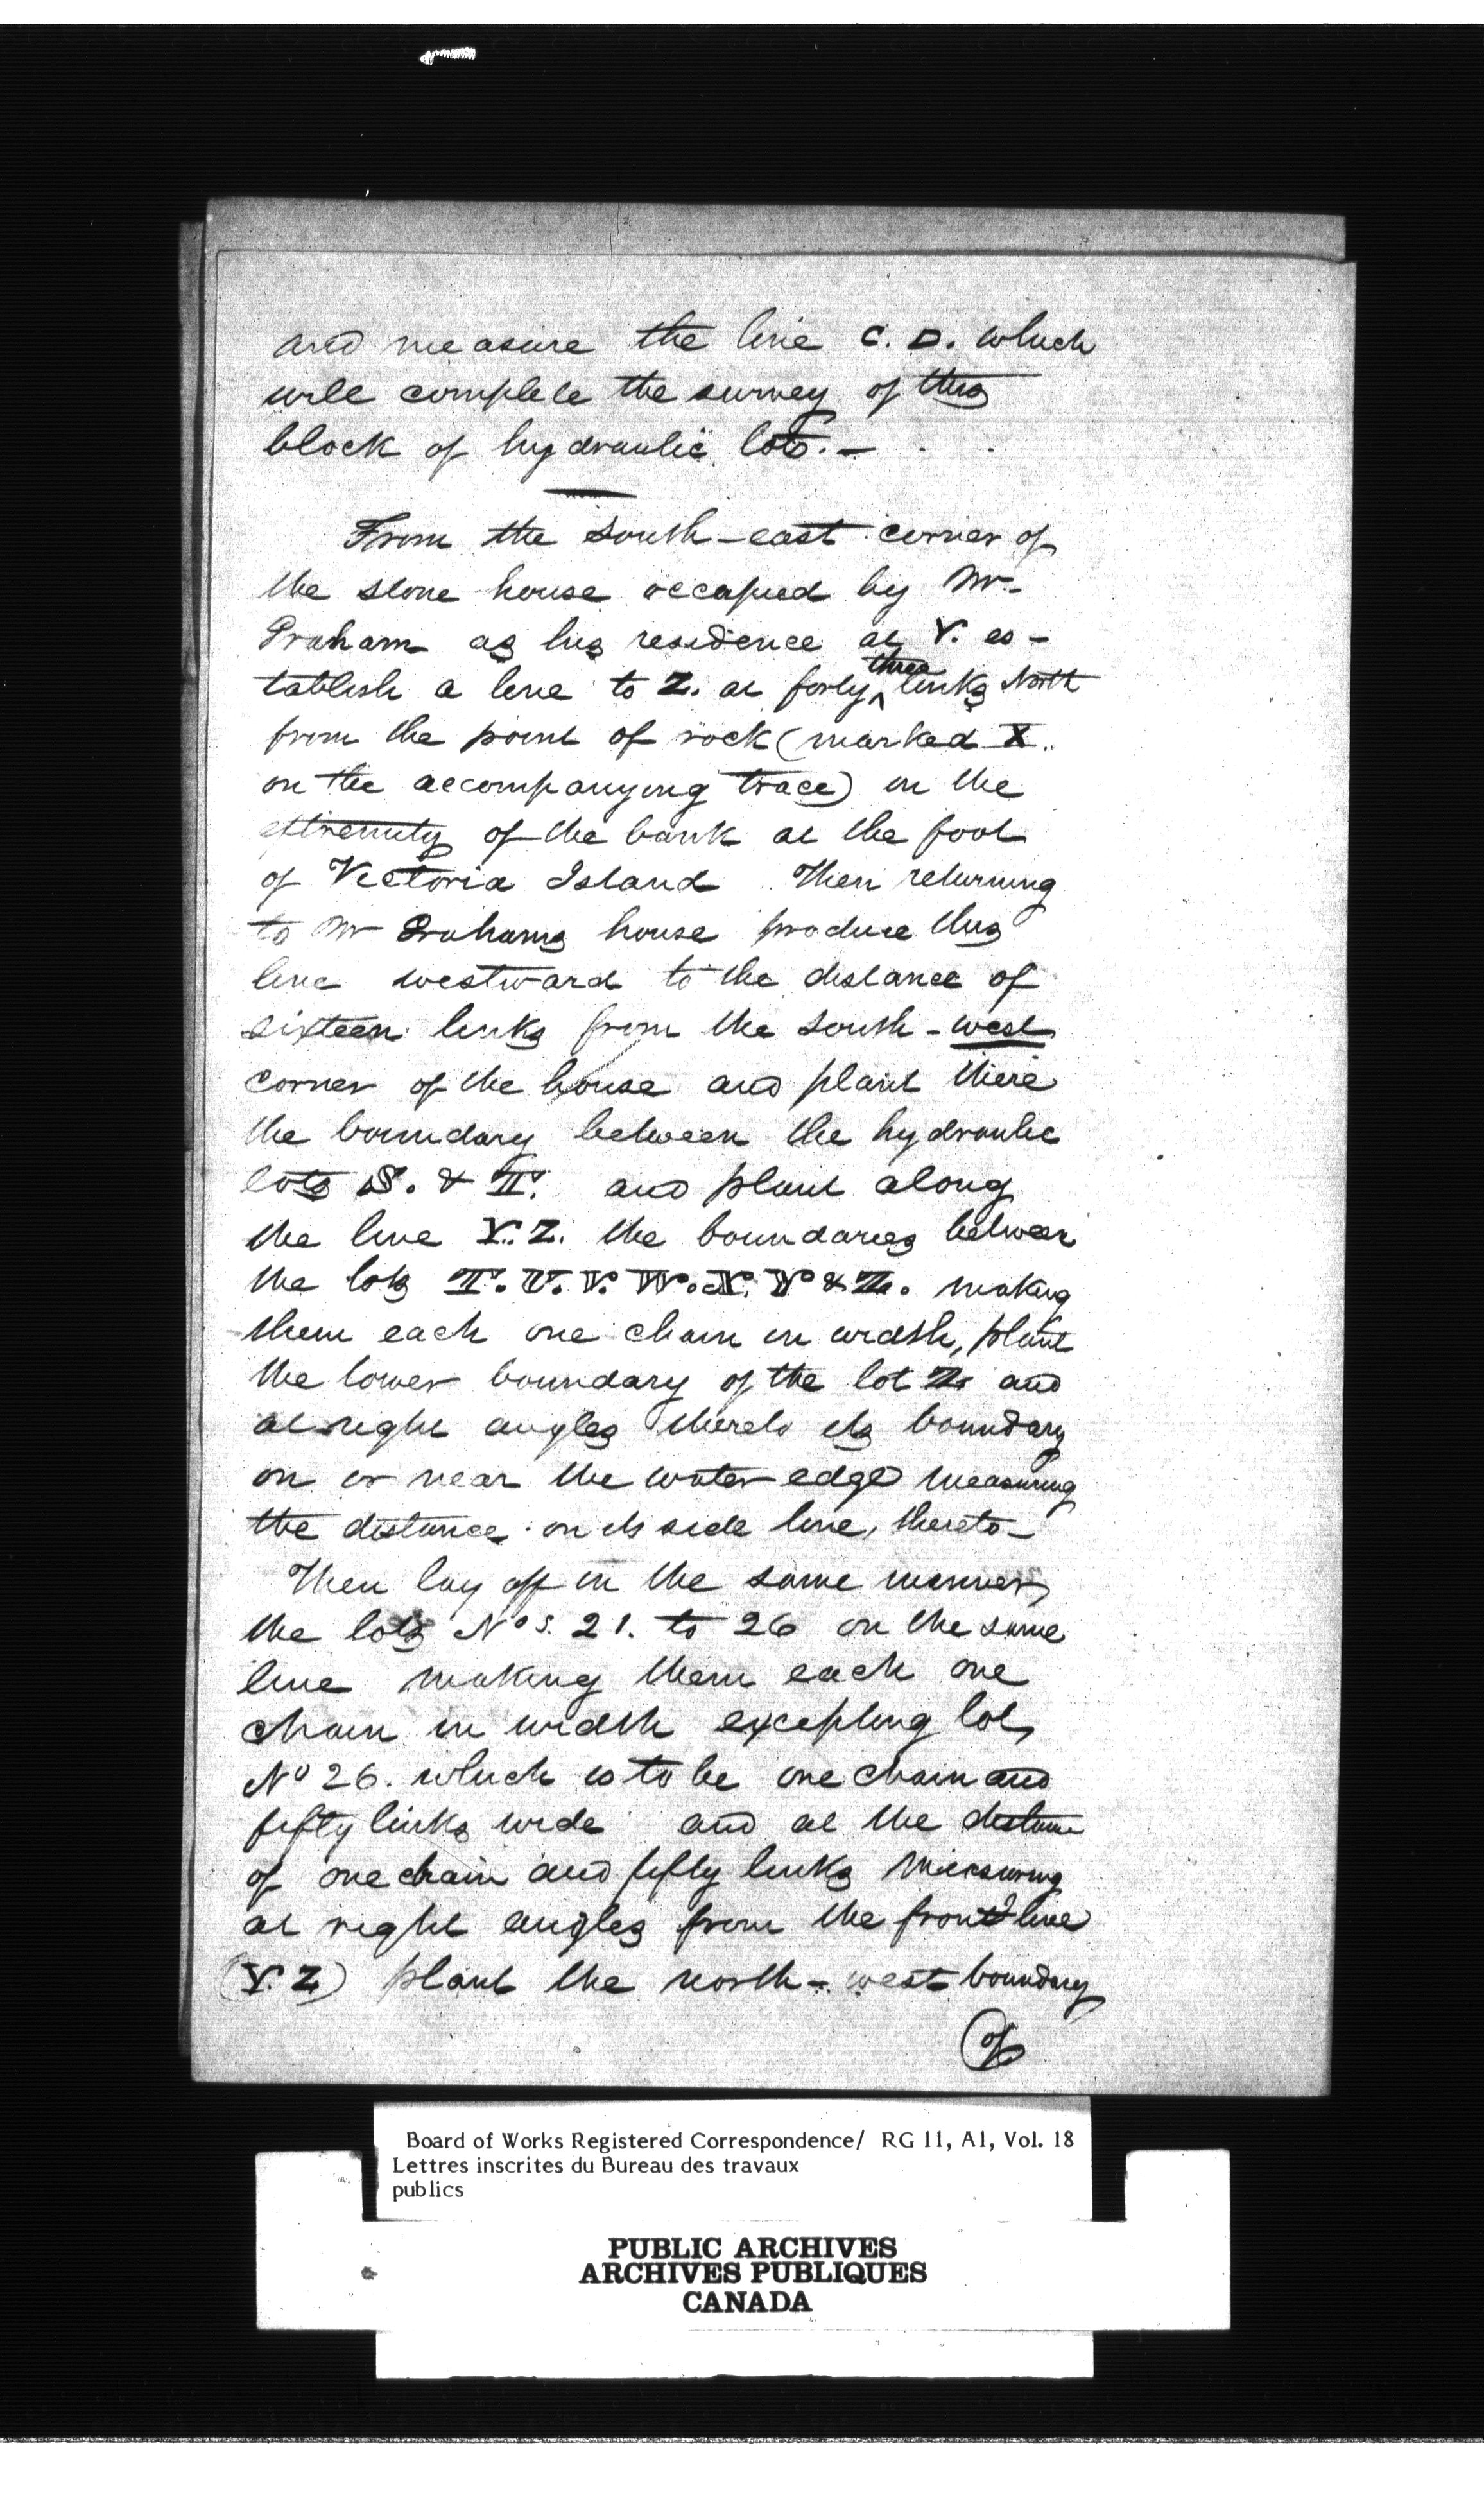 and measure the line C. D. which
will complete the survey of this
block of hydraulic lots. —
From the south-east corner of
the stone house occupied by Mr.
as his residence at Y. es-
tablish a line to Z. at forty three links North
from the point of rock (marked X.
on the accompanying trace) on the
extremity of the bank at the foot
of Victoria Island. Then returning
to Mr house produce this
line westward to the distance of
sixteen links from the south-west
corner of the house and plant there
the boundary between the hydraulic
lots S. & T. and plant along
the line Y. Z. the boundaries between
the lots T. U. V. W. X. Y & Z. making
them each one chain in width, plant
the lower boundary of the lot Z. and
at right angles thereto its boundary
on or near the water edge measuring
the distance on its side line, thereto —
Then lay off in the same manner
the lots Nos. 21. to 26 on the same
line making them each one
chain in width excepting lot
No 26. which is to be one chain and
fifty links wide and at the distance
of one chain and fifty links measuring
at right angles from the front line
(Y. Z) plant the north-west boundary
of
Board of Works Registered Correspondence/ RG 11, A1, Vol. 18
Lettres inscrites du Bureau des travaux
publics
PUBLIC ARCHIVES
ARCHIVES PUBLIQUES
CANADA